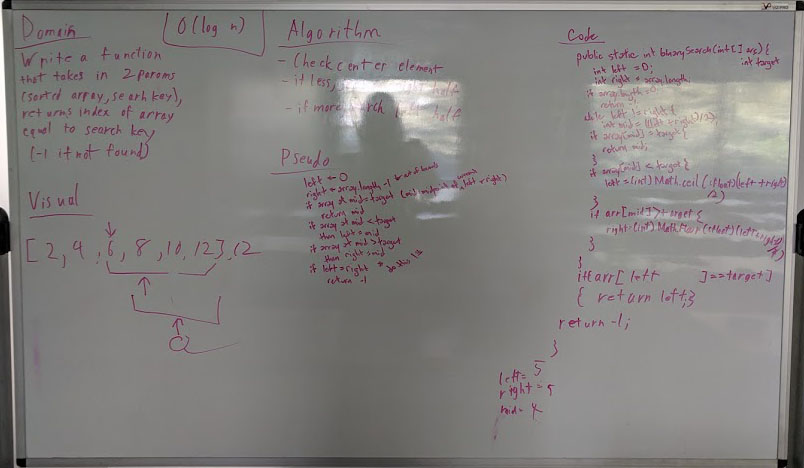 Domain
O(log n)
Write a function
that takes in 2 params
(sorted array, search key),
returns index of array
equal to search key
(-1 if not found)
Visual
[2, 4, 6, 8, 10, 12], 12
Algorithm
- Check center element
- if less, half
- if more search half
Pseudo
left ← 0
right ← array.length -1 * out of bounds
if array at mid = target (mid midpoint of left + right)
return mid
if array at mid < target
then left = mid
if array at mid > target
then right = mid
if left = right * do this 1st
return -1
Code
public static int binarySearch(int[] arr) {
int target
int left = 0;
int right = array.length
if array.length = 0;
return
while left != right {
int mid = (left + right)/2);
if array[mid] = target {
return mid;
}
if array[mid] < target {
left = (int) Math.ceil((float)(left + right)
/2)
}
if arr[mid] > target {
right = (int) Math.floor((float)(left + right)
/2)
}
}
if arr[ left ] == target]
{ return left;}
return -1;
}
left = 5
right = 5
mid = 4